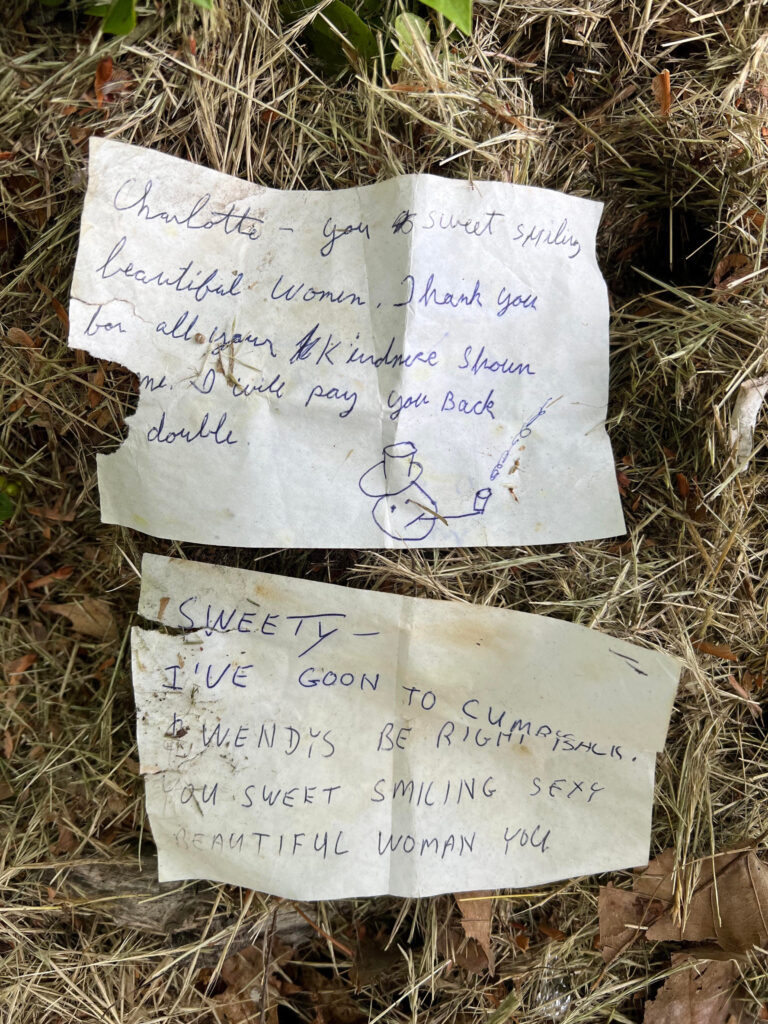 Charlotte - you sweet smiling
beautiful women. Thank you
for all your Kindnise Shown
me. I will pay you Back
double.
SWEETY -
I'VE GOON TO CUMBYS
& WENDYS BE RIGHT BACK.
YOU SWEET SMILING SEXY
BEAUTIFUL WOMAN YOU